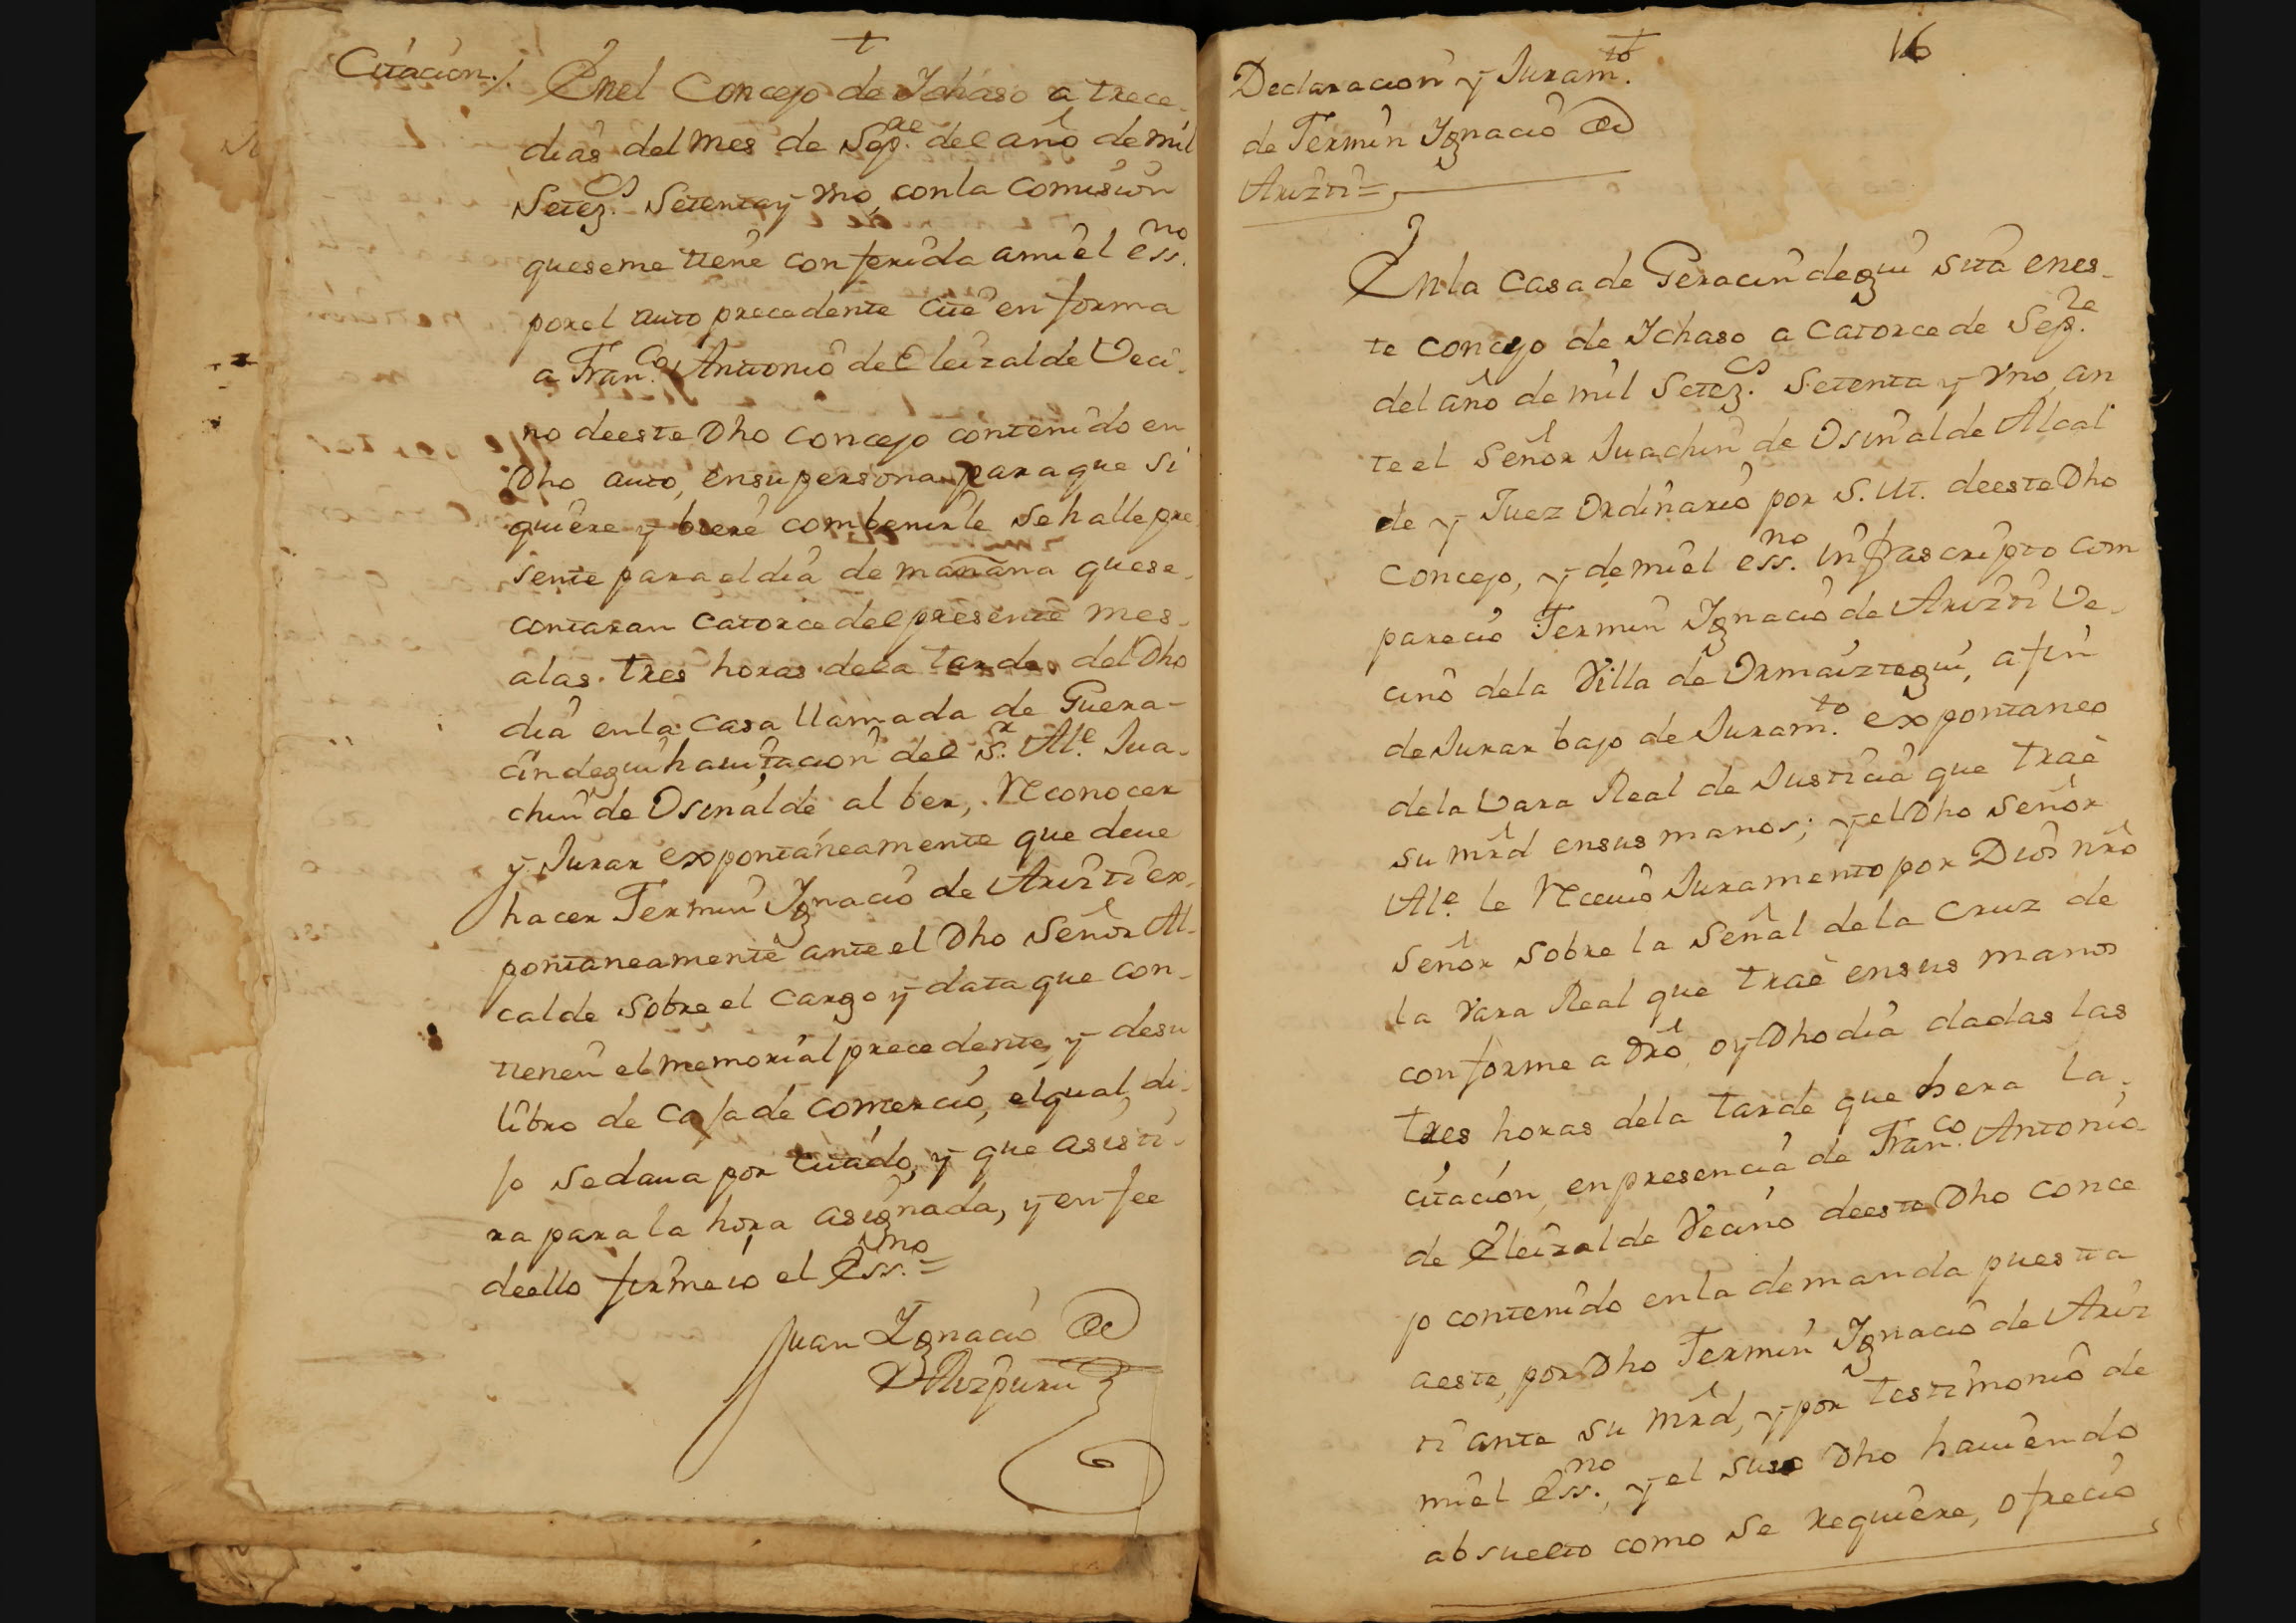 +
Citación./.
Enel Concejo de Ichaso a trece
dias del mes de Sep.re del año de mil
Setez.os Setenta y Vno, con la Comision
queseme tiene conferida ami el ess.no
porel auto precedente Cite en forma
a Fran.co Antonio de Eleizalde Veci-
no deeste Dho Concejo contenido en
Dho auto, ensupersona, para que Si
quiere y biere combenirle Sehalle pre
sente para el dia de mañana quese
contaran Catorce del presente mes
alas tres horas dela tarde del Dho
dia enla Casa llamada de Guera-
cindegui havitacion del S.r Al.e Jua-
chin de Osinalde al ber, Reconocer
y Jurar expontáneamente que deve
hacer Fermin Ignacio de Arizti ex-
pontaneamente ante el Dho Señor Al-
calde Sobre el Cargo y data que con-
tienen el memorial precedente, y desu
libro de Caja de Comercio, elqual di-
jo Sedava por Citádo, y que asisti-
ra para la hora asignada, y en fee
deello firme io el Ess.no =
Juan Ignacio de
Aizpuru
16
Declaracion y Juram.to
de Fermin Ignacio de
Arizti =
Enla Casa de Geracindegui sita enes-
te concejo de Ichaso a Catorce de Sep.re
del año de mil Setez.os Setenta y Vno, an
te el Señor Juachin de Osinalde Alcal
de y Juez Ordinario por S. M. deeste Dho
Concejo, y de mi el ess.no infrascripto com
parecio Fermin Ignacio de Arizti Ve-
cino dela Villa de Ormaiztegui, a fin
de Jurar bajo de Juram.to expontaneo
dela Vara Real de Justicia que traè
su mrd ensus manos; y el Dho Señor
Al.e le Recivio Juramento por Dios nro
Señor Sobre la Señal dela Cruz de
la Vara Real que traè ensus manos
conforme a Dro, oy Dho dia dadas las
tres horas dela tarde que hera la
citación, en presencia de Fran.co Antonio
de Eleizalde Vecino deeste Dho Conce
jo contenido enla demanda puesta
aeste, por Dho Fermin Ignacio de Ariz
ti ante su mrd, y por testimonio de
mi el Ess.no, y el suso Dho haviendo
absuelto como se requiere, ofrecio